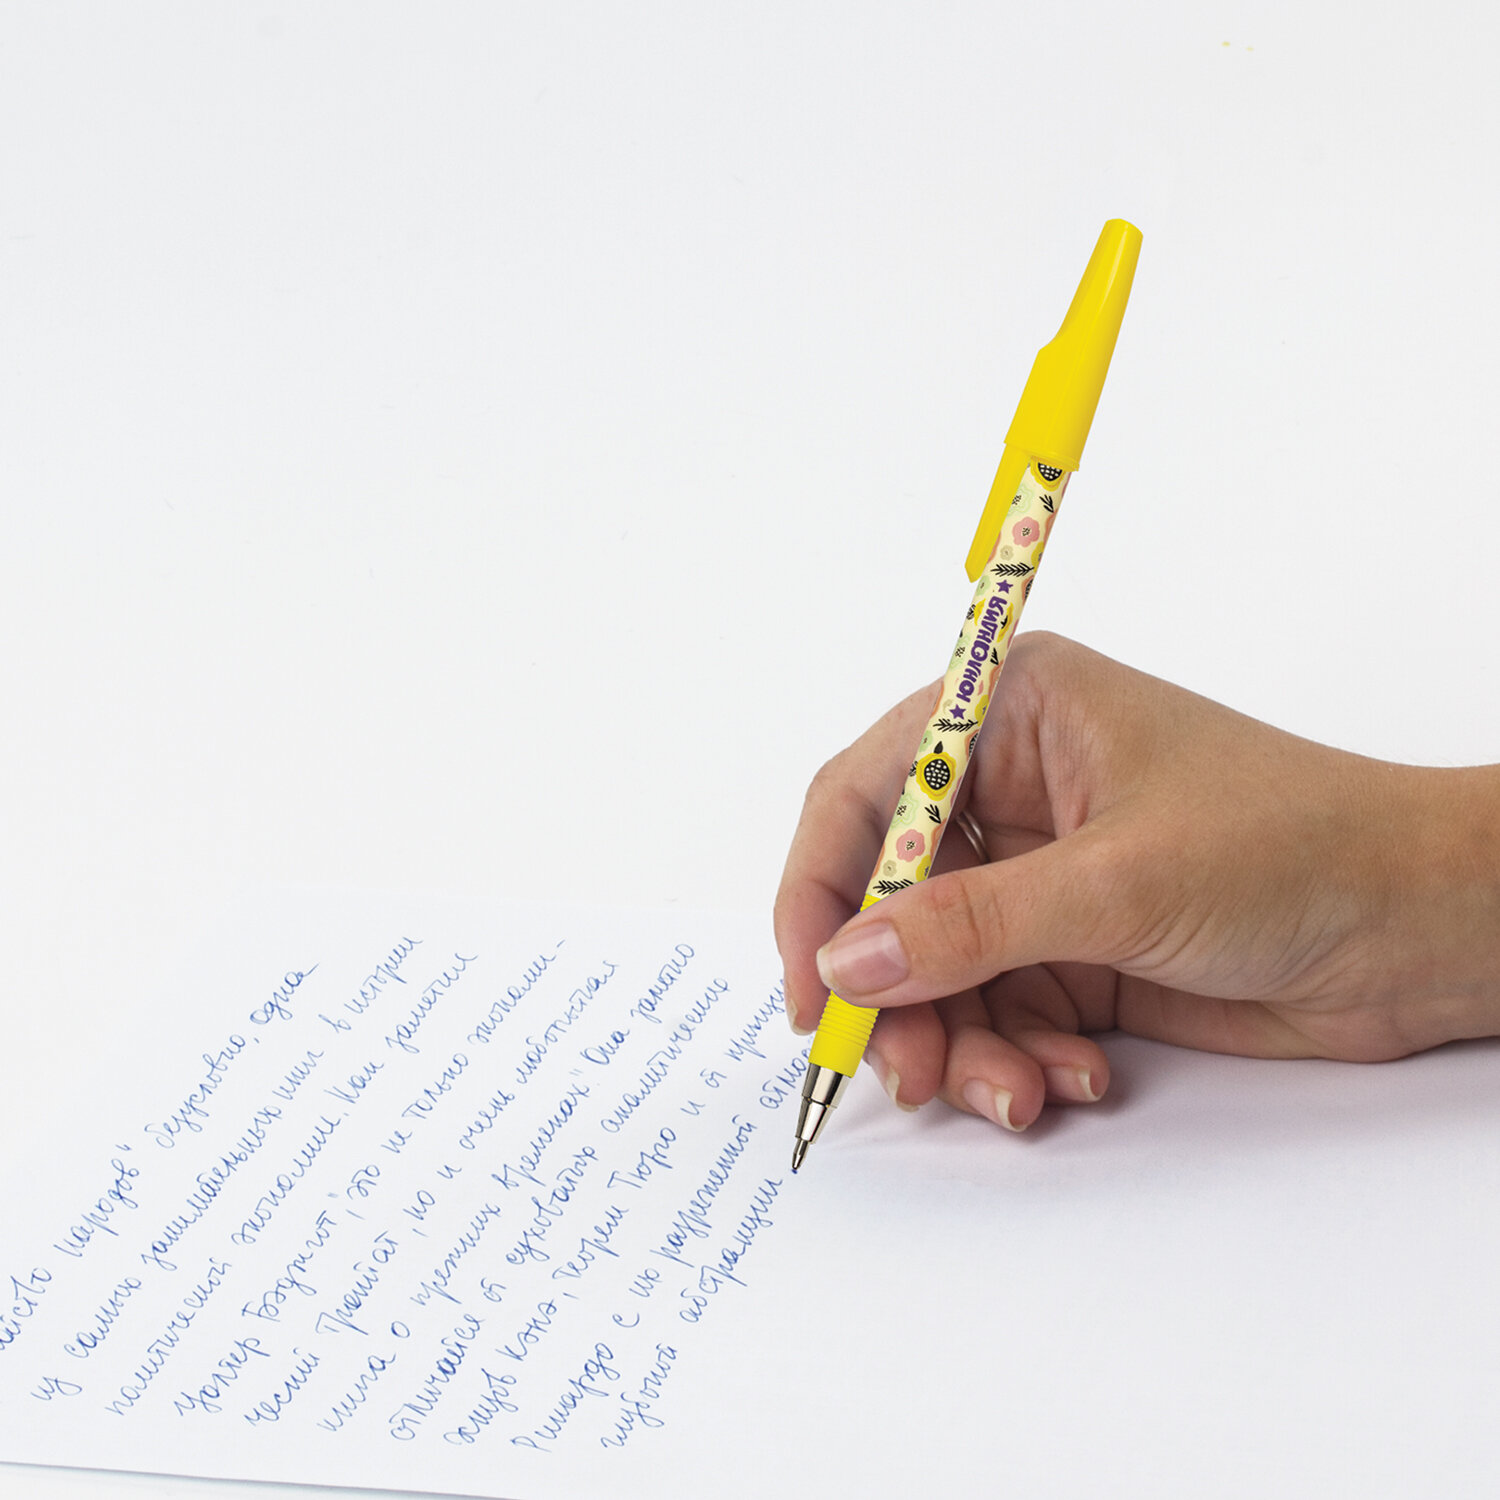 йство народов" безусловно, одна
из самых занимательных книг в истории
политической экономии. Как заметил
Уолтер Бэджгот, "это не только экономи-
ческий трактат, но и очень любопытная
книга о прежних временах". Она заметно
отличается от суховатых аналитических
Кэнэ, Теорем Тюрго и от
Рикардо с их разреженной атмос
глубокой абстракции
ЮНЛАНДИЯ